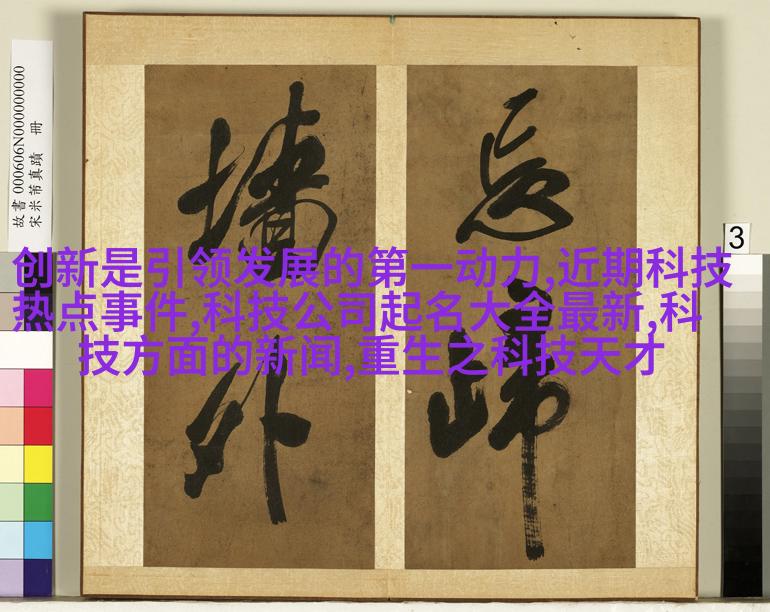 创新是引领发展的第一动力,近期科技
热点事件,科技公司起名大全最新,科
技方面的新闻,重生之科技天才
忘歸
墻外
故書 000606N000000000
宋米芾真蹟 冊
3